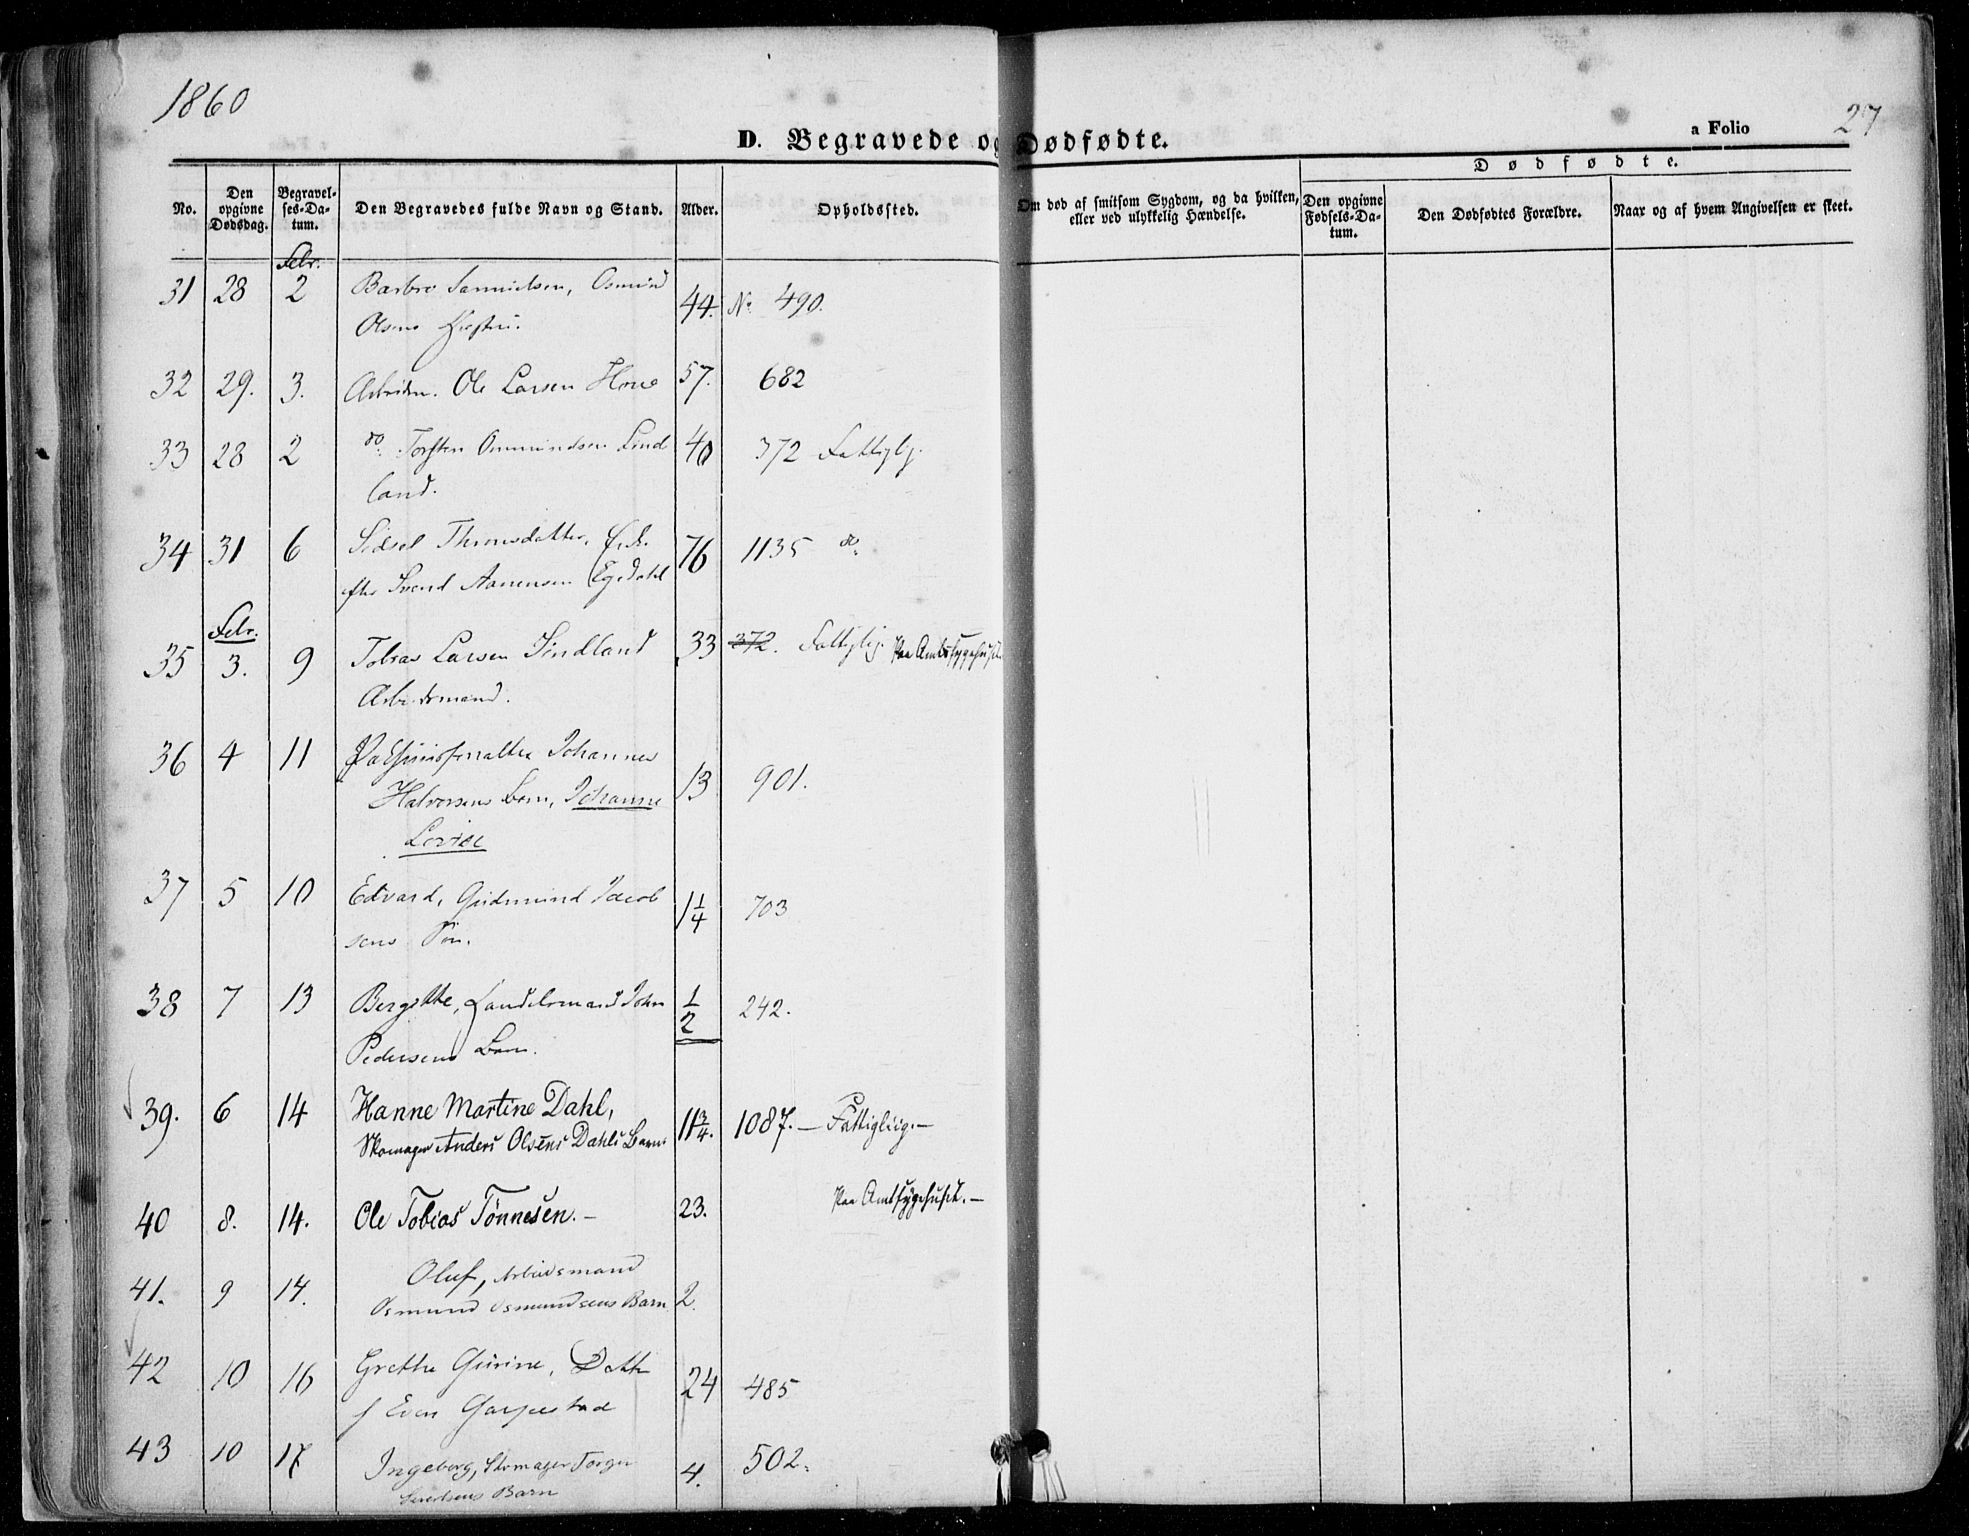 1860
27
a Folio
D. Begravede og Dødfødte.
Dødfødte.
No. Den opgivne Dødsdag. Begravelses-Datum. Den Begravedes fulde Navn og Stand. Alder. Opholdssted. Om død af smitsom Sygdom, og da hvilken, eller ved ulykkelig Hændelse. Den opgivne Fødsels-Datum. Den Dødfødtes Forældre. Naar og af hvem Angivelsen er skeet.
Febr.
31 28 2 Barbro Samuelsen, Osmund 44. No. 490.
Olsens Hustru.
32 29. 3. Arbeidsm. Ole Larsen Hove 57. 682
33 28 2 do. Torsten Ommundsen Lind 40 372 Fattiglj.
land.
34 31 6 Sidsel Thronsdatter, Enke 76 1135 do.
efter Svend Aanensen Egedahl
Febr.
35 3. 9 Tobias Larsen Sindland 33 372. Fattiglj. Paa Amtssygehuset.
Arbeidsmand.
36 4 11 Johannes
Halvorsens Barn, Johanne 13 901.
Lovise
37 5 10 Edvard, Gudmund Jacob 1 1/4 703
sens Søn.
38 7 13 Bergitte, Handelsmand John 1/2 242.
Pedersens Barn.
39. 6 14 Hanne Martine Dahl, 11 3/4. 1087. — Fattiglig. —
Skomager Anders Olsens Dahls Barn
40 8. 14. Ole Tobias Tønnesen. — 23. Paa Amtssygehuset. —
41. 9 14. Oluf, Arbeidsmand
Osmund Osmundsens Barn 2.
42 10 16 Grethe Gurine, Datter 24 485
f Even Garpestad
43 10 17 Ingeborg, Skomager Torger 4. 502.
Sivertsens Barn